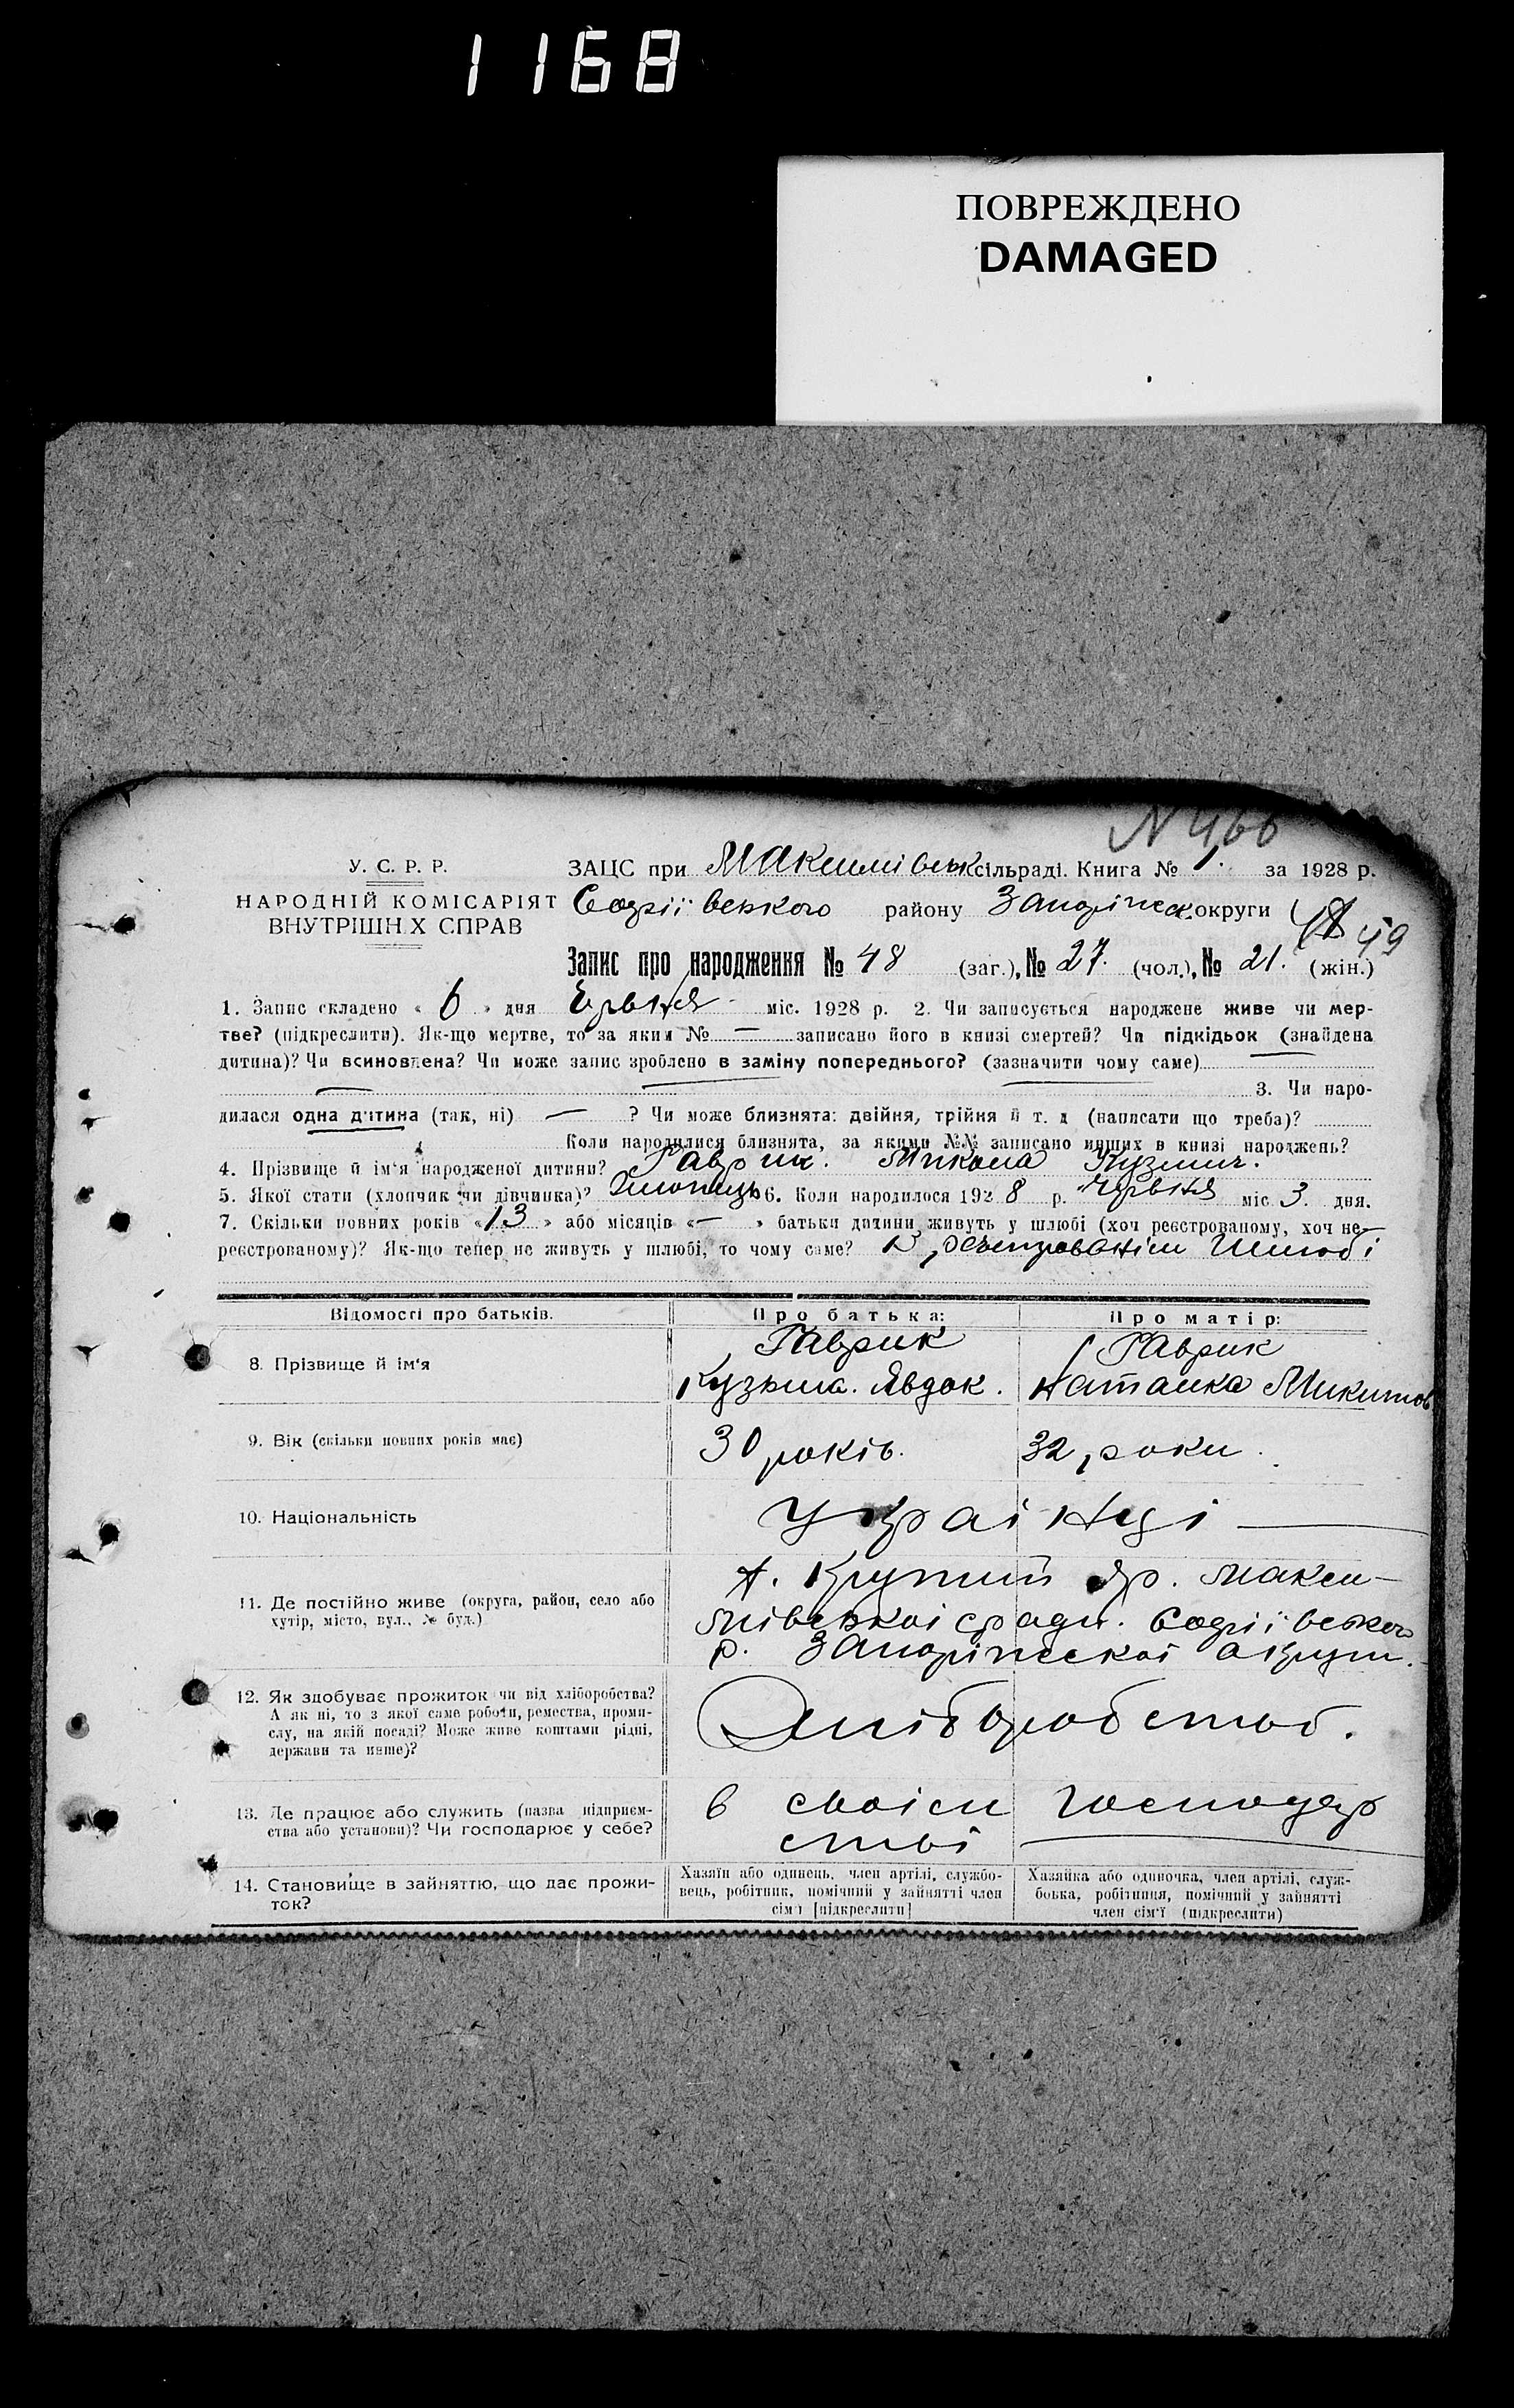 1168
ПОВРЕЖДЕНО
DAMAGED
N 466
У. С. Р. Р.
НАРОДНІЙ КОМІСАРІЯТ
ВНУТРІШН Х СПРАВ
ЗАЦС при Максимівськ сільраді. Книга № 1. за 1928 р.
Софіївського району Запоріжськ. округи
49
Запис про народження № 48 (заг.), № 27. (чол.), № 21. (жін.)
1. Запис складено « 6 » дня Червня міс. 1928 р. 2. Чи записується народжене живе чи мер-
тве? (підкреслити). Як-що мертве, то за яким № — записано його в книзі смертей? Чи підкідьок (знайдена
дитина)? Чи всиновлена? Чи може запис зроблено в заміну попереднього? (зазначити чому саме) —
3. Чи наро-
дилася одна дитина (так, ні) — ? Чи може близнята: двійня, трійня й т. д (написати що треба)?
Коли народилися близнята, за якими №№ записано инших в книзі народжень?
4. Прізвище й ім'я народженої дитини? Гаврик. Микола Кузмич.
5. Якої стати (хлопчик чи дівчинка)? Хлопець 6. Коли народилося 1928 р. Червня міс 3. дня.
7. Скільки повних років «13» або місяців «—» батьки дитини живуть у шлюбі (хоч реєстрованому, хоч не-
реєстрованому)? Як-що тепер не живуть у шлюбі, то чому саме? В реєстрованім Шлюбі
Відомості про батьків. Про батька: Про матір:
8. Прізвище й ім'я Гаврик Кузьма. Явдок. Гаврик Наталка Микитов
9. Вік (скільки повних років має) 30 років. 32 роки.
10. Національність Українці —
11. Де постійно живе (округа, район, село або
хутір, місто, вул., № буд.)
х. Крутий Яр. Макси-
мівської сради. Софіївського
р. Запоріжської округи.
12. Як здобуває прожиток чи від хліборобства?
А як ні, то з якої саме роботи, ремества, проми-
слу, на якій посаді? Може живе коштами рідні,
держави та инше)?
Хліборобством.
13. Де працює або служить (назва підприєм-
ства або установи)? Чи господарює у себе?
в своїм господар
стві
14. Становище в зайняттю, що дає прожи-
ток?
Хазяїн або одинець, член артілі, службо-
вець, робітник, помічний у зайнятті член
сім'ї [підкреслити]
Хазяйка або одиночка, член артілі, служ-
бовка, робітниця, помічний у зайнятті
член сім'ї (підкреслити)